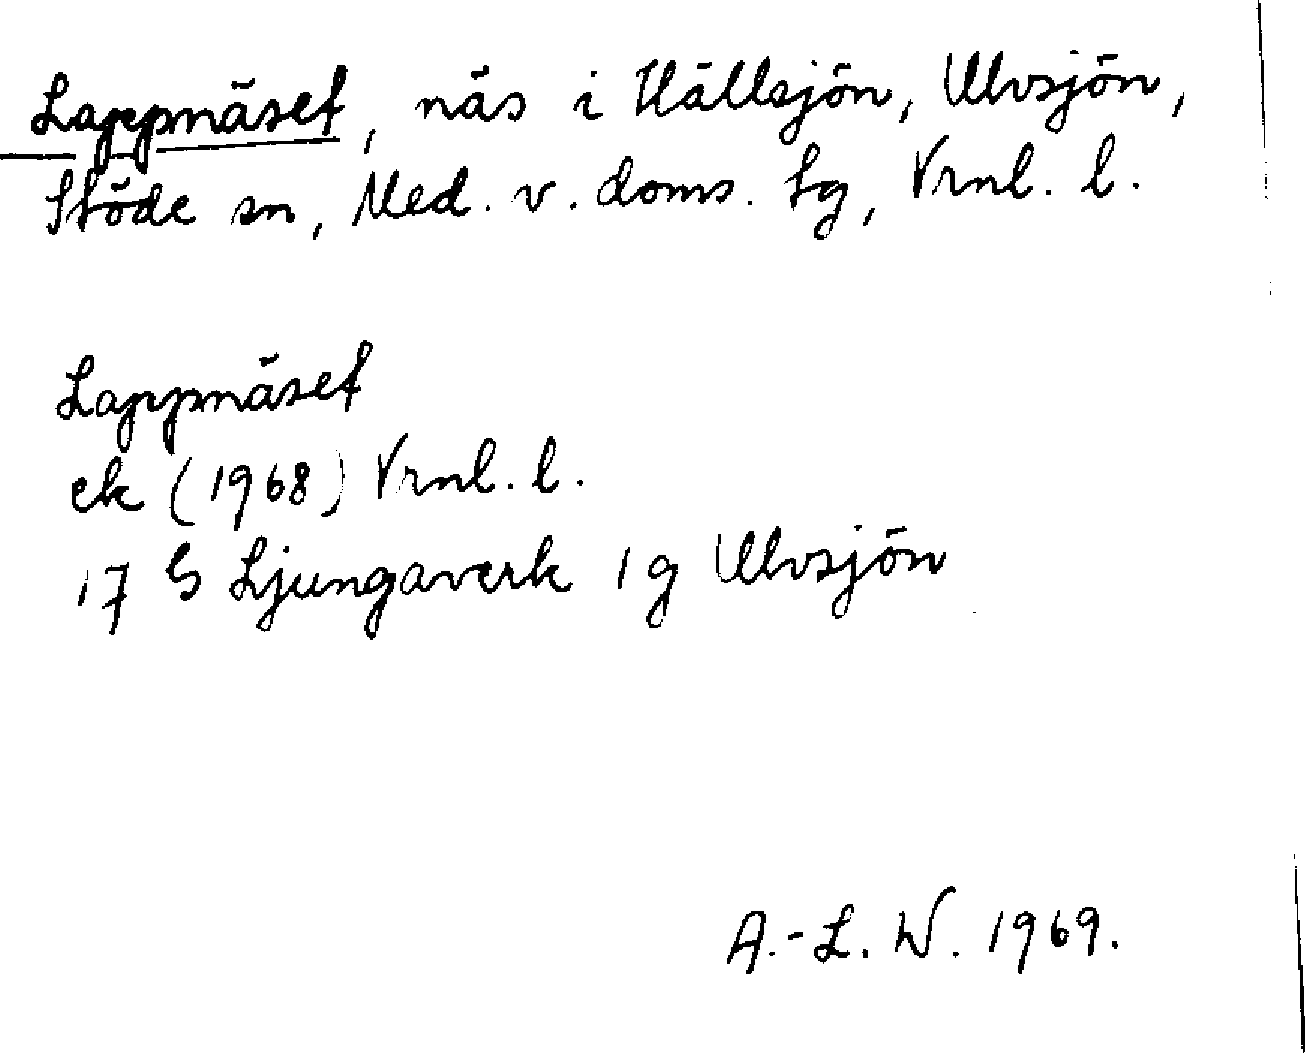 Lappnäset, näs i Hällsjön, Ulvsjön,
Stöde sn, Med. v. doms. tg, Vrnl. l.
Lappnäset
ek (1968) Vrnl. l.
17 G Ljungaverk 1 g Ulvsjön
A.-L. W. 1969.